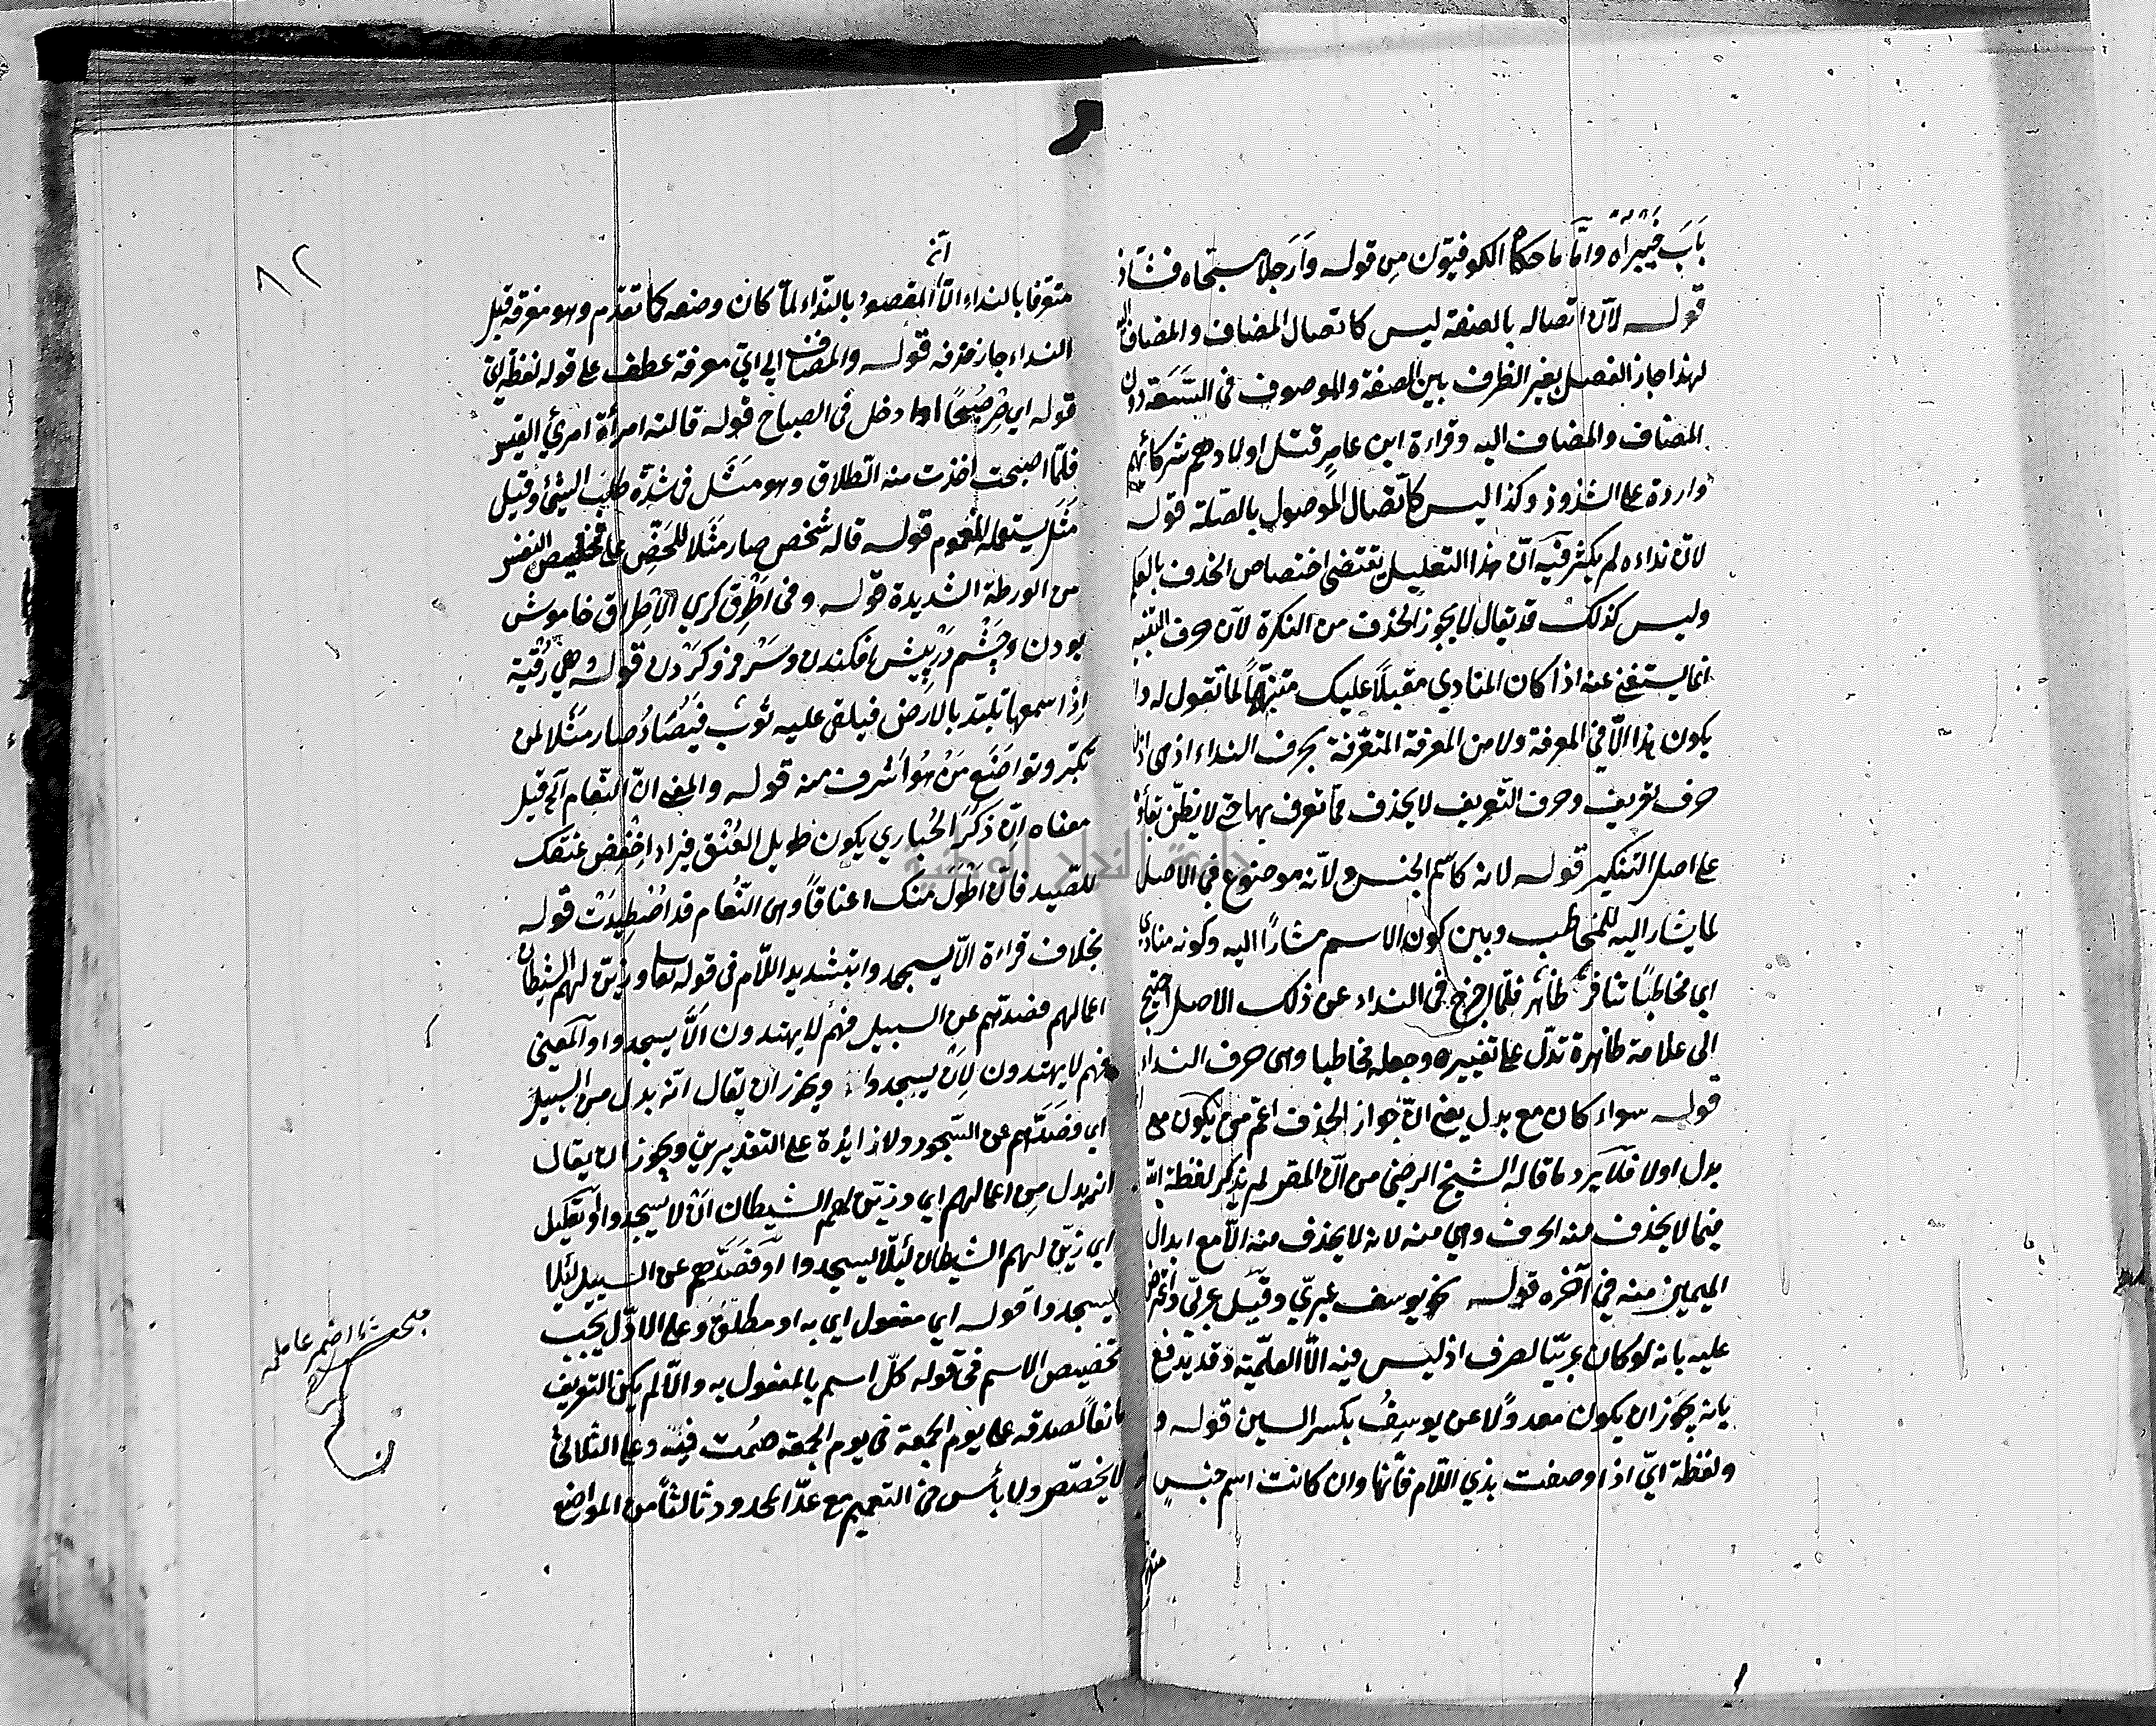 بَابَ خَيْبَرَاه وامّا ما حكاه الكوفيّون مِن قوله وَارَجلاً مسبّحاه فشاذ
قوله لانّ اتصاله بالصفة ليس كاتصال المضاف والمضاف اليه
لهذا جاز الفصل بغير الظرف بين الصفة والموصوف في السَّعَة دون
المضاف والمضاف اليه وقراءة ابن عامرٍ قتل اولادهم شركائهم
واردة على الشذوذ وكذا ليس كاتّصال الموصول بالصّلة قوله
لانّ نداءه لم يكثر فيه انّ هذا التعليل يقتضى اختصاص الحذف بالعلم
وليس كذلك قد يقال لا يجوز الحذف من النكرة لانّ حرف التنبيه
انما يستغنى عنه اذا كان المنادي مقبلاً عليك متنبّهاً لما تقول له ولا
يكون هذا الّا في المعرفة ولا من المعرفة المتعرّفة بحرف النداء اذ هى اذاً
حرف تعريف وحرف التّعريف لا يحذف ممّا تعرف بها حتى لا يظنّ بقاؤه
على اصل التنكير قوله لانه كاسم الجنس ولانّه موضوع في الاصل
لما يشار اليه للمخاطب وبين كون الاسم مشارًا اليه وكونه منادى
اي مخاطبًا تنافرٌ ظاهر فلمّا اخرج في النداء عن ذلك الاصل احتيج
الى علامة ظاهرة تدلّ على تغييره وجعله مخاطبا وهى حرف النداء
قوله سواء كان مع بدل يعنى انّ جواز الحذف اعمّ من ان يكون مع
بدل اولا فلا يَرد ما قاله الشيخ الرضى من انّ المص لم يذكر لفظة الله
فيما لا يحذف منه الحرف وهى منه لانه لا يحذف منه الّا مع ابدال
الميمين منه في آخره قوله نحو يوسف عبريّ وقيل عربيّ واعترض
عليه بانه لو كان عربيّا لصرف اذ ليس فيه الّا العلميّة وقد يدفع
بانه يجوز ان يكون معدولًا عن يوسِفُ بكسر السين قوله و
ولفظة ايّ اذا وصفت بذي اللّام فانّها وان كانت اسم جنسٍ
٨٢
انّه
متعرفا بالنداء الّا المقصود بالنّداء لمّا كان وصفه كما تقدّم وهو معرفة قبل
النداء جاز حذفه قوله والمضاف الى ايّ معرفة عطف على قوله لفظة ايّ
قوله اي صِرْ صُبحًا او ادخل في الصباح قوله قالته امرأة امرئ القيس
فلمّا اصبحت اخذت منه الطلاق وهو مَثَل في شدّة طلب الشئ وقيل
مَثَل يستعمله المغموم قوله قاله شخص صار مَثَلا للحَضّ على تخليص النفس
من الورطة الشديدة قوله وفى اَطْرِق كَري الاطراق خاموش
بودن وچَشْم دَرْپیش افکندن وسَرْ فرو کَرْدن قوله وهي رُقْيَة
اذا سمعها تلبّد بالارض فيلقى عليه ثوب فيُصَادُ صار مَثَلا لمن
تكبّر وتواضَع مَنْ هُوَ اَشرف منه قوله والمعنى انّ النّعام آه قيل
معناه انّ ذَكَر الحُباري يكون طويل العُنُق فيراد اِخْفِض عنقك
للصّيد فانّ اَطْوَل منك اعناقاً وهى النّعام قد اُصْطِيدَتْ قوله
بخلاف قراءة الّا يسجدوا بتشديد اللّام في قوله تعالى وزيّن لهم الشيطان
اعمالهم فصدّهم عن السبيل فهم لا يهتدون الَّا يسجدوا والمعنى
فهم لا يهتدون لِاَنْ يسجدوا ويجوز ان يقال انّه بدل من السبيل
اي فصَدَّهم عن السّجود ولا زايدة على التقديرين ويجوز ان يقال
انه بدل مِن اعمالهم اي وزيّن لهم الشيطان اَنْ لا يسجدوا او تعليل
اي زيّن لهم الشيطان لئلّا يسجدوا اَو فَصَدَّهم عن السبيل لئلا
يسجدوا قوله اي مفعول اي به او مطلَق وعلى الاوّل يجب
تخصيص الاسم في قوله كلّ اسم بالمفعول به والّا لم يكن التعريف
مانعاً لصدقه على يوم الجمعة في يوم الجمعة صُمت فيه وعلى الثاني
لا يخصّص ولا بأس في التعميم مع عدّ المحدود ثالثاً من المواضع
مبحث ما اضمر عامله